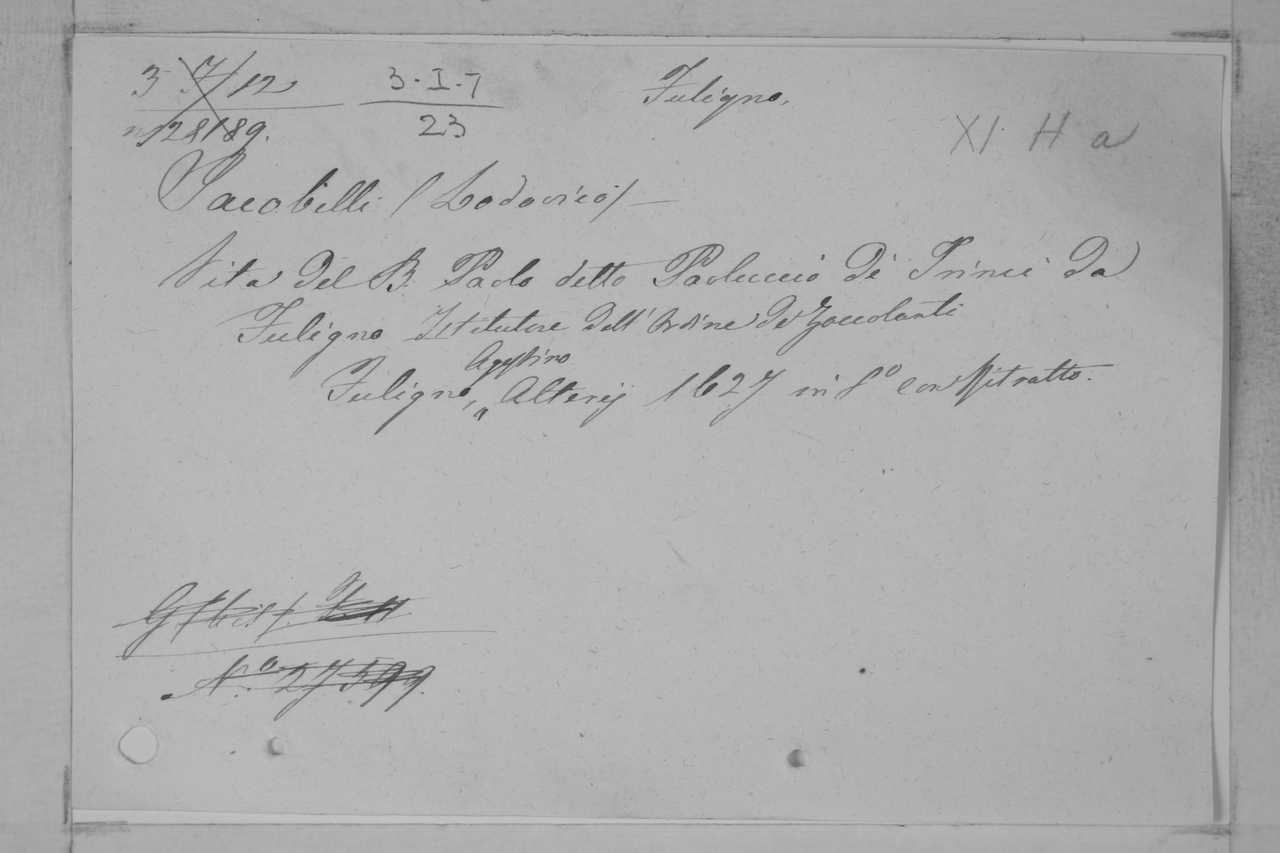 3 7/12 3·I·7 Fuligno.
n 128189. 23 XI H a
Jacobilli (Lodovico) —
Vita del B. Paolo detto Paoluccio de Trinci da
Fuligno Istitutore dell'Ordine de Zoccolanti
Agostino
Fuligno, „ Alterij 1627 in 8° con Ritratto.
No 27599.